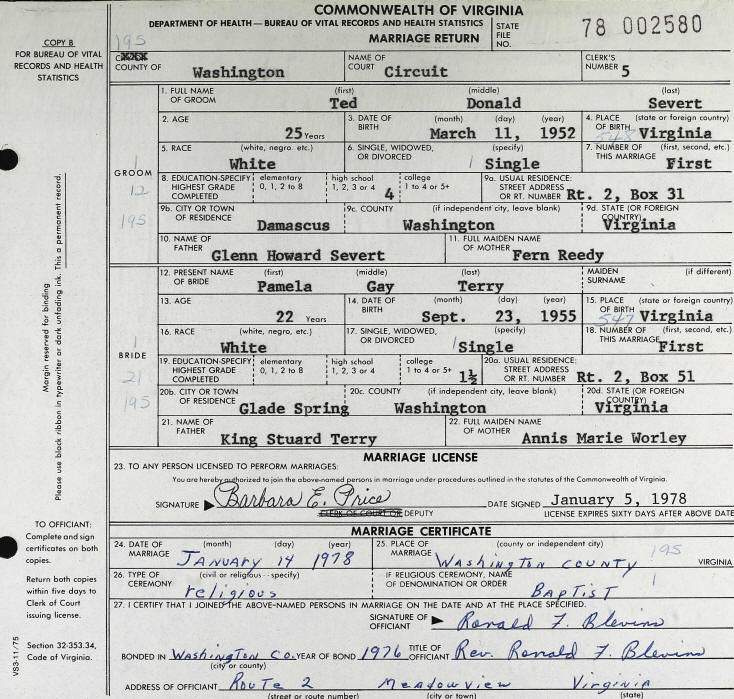 COMMONWEALTH OF VIRGINIA
DEPARTMENT OF HEALTH — BUREAU OF VITAL RECORDS AND HEALTH STATISTICS
MARRIAGE RETURN
STATE FILE NO. 78 002580
COPY B
FOR BUREAU OF VITAL
RECORDS AND HEALTH
STATISTICS
195
COUNTY OF Washington
NAME OF COURT Circuit
CLERK'S NUMBER 5
GROOM
1
12
195
1. FULL NAME OF GROOM (first) Ted (middle) Donald (last) Severt
2. AGE 25 Years
3. DATE OF BIRTH (month) (day) (year) March 11, 1952
4. PLACE OF BIRTH (state or foreign country) 548 Virginia
5. RACE (white, negro, etc.) White
6. SINGLE, WIDOWED, OR DIVORCED (specify) Single
7. NUMBER OF THIS MARRIAGE (first, second, etc.) First
8. EDUCATION-SPECIFY HIGHEST GRADE COMPLETED elementary 0, 1, 2 to 8 high school 1, 2, 3 or 4 4 college 1 to 4 or 5+
9a. USUAL RESIDENCE: STREET ADDRESS OR RT. NUMBER Rt. 2, Box 31
9b. CITY OR TOWN OF RESIDENCE Damascus
9c. COUNTY (if independent city, leave blank) Washington
9d. STATE (OR FOREIGN COUNTRY) Virginia
10. NAME OF FATHER Glenn Howard Severt
11. FULL MAIDEN NAME OF MOTHER Fern Reedy
BRIDE
1
21
195
12. PRESENT NAME OF BRIDE (first) Pamela (middle) Gay (last) Terry
MAIDEN SURNAME (if different)
13. AGE 22 Years
14. DATE OF BIRTH (month) (day) (year) Sept. 23, 1955
15. PLACE OF BIRTH (state or foreign country) 547 Virginia
16. RACE (white, negro, etc.) White
17. SINGLE, WIDOWED, OR DIVORCED (specify) Single
18. NUMBER OF THIS MARRIAGE (first, second, etc.) First
19. EDUCATION-SPECIFY HIGHEST GRADE COMPLETED elementary 0, 1, 2 to 8 high school 1, 2, 3 or 4 college 1 to 4 or 5+ 1½
20a. USUAL RESIDENCE: STREET ADDRESS OR RT. NUMBER Rt. 2, Box 51
20b. CITY OR TOWN OF RESIDENCE Glade Spring
20c. COUNTY (if independent city, leave blank) Washington
20d. STATE (OR FOREIGN COUNTRY) Virginia
21. NAME OF FATHER King Stuard Terry
22. FULL MAIDEN NAME OF MOTHER Annis Marie Worley
Margin reserved for binding
Please use black ribbon in typewriter or dark unfading ink. This a permanent record.
MARRIAGE LICENSE
23. TO ANY PERSON LICENSED TO PERFORM MARRIAGES:
You are hereby authorized to join the above-named persons in marriage under procedures outlined in the statutes of the Commonwealth of Virginia.
SIGNATURE Barbara E. Price DATE SIGNED January 5, 1978
CLERK OF COURT OR DEPUTY LICENSE EXPIRES SIXTY DAYS AFTER ABOVE DATE
TO OFFICIANT:
Complete and sign
certificates on both
copies.
Return both copies
within five days to
Clerk of Court
issuing license.
Section 32-353.34,
Code of Virginia.
VS3-11/75
MARRIAGE CERTIFICATE
24. DATE OF MARRIAGE (month) (day) (year) January 14 1978
25. PLACE OF MARRIAGE (county or independent city) Washington County 195 VIRGINIA
26. TYPE OF CEREMONY (civil or religious -- specify) religious
IF RELIGIOUS CEREMONY, NAME OF DENOMINATION OR ORDER Baptist 1
27. I CERTIFY THAT I JOINED THE ABOVE-NAMED PERSONS IN MARRIAGE ON THE DATE AND AT THE PLACE SPECIFIED.
SIGNATURE OF OFFICIANT Ronald F. Blevins
BONDED IN Washington Co. YEAR OF BOND 1976 TITLE OF OFFICIANT Rev. Ronald F. Blevins
(city or county)
ADDRESS OF OFFICIANT Route 2 Meadowview Virginia
(street or route number) (city or town) (state)